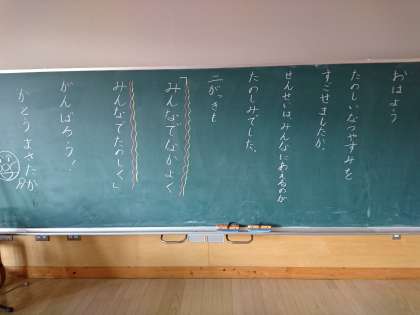 おはよう
たのしいなつやすみを
すごせましたか。
せんせいはみんなにあえるのが
たのしみでした。
二がっきも
「みんなでなかよく
みんなでたのしく」
がんばろう！
かとうまさたか